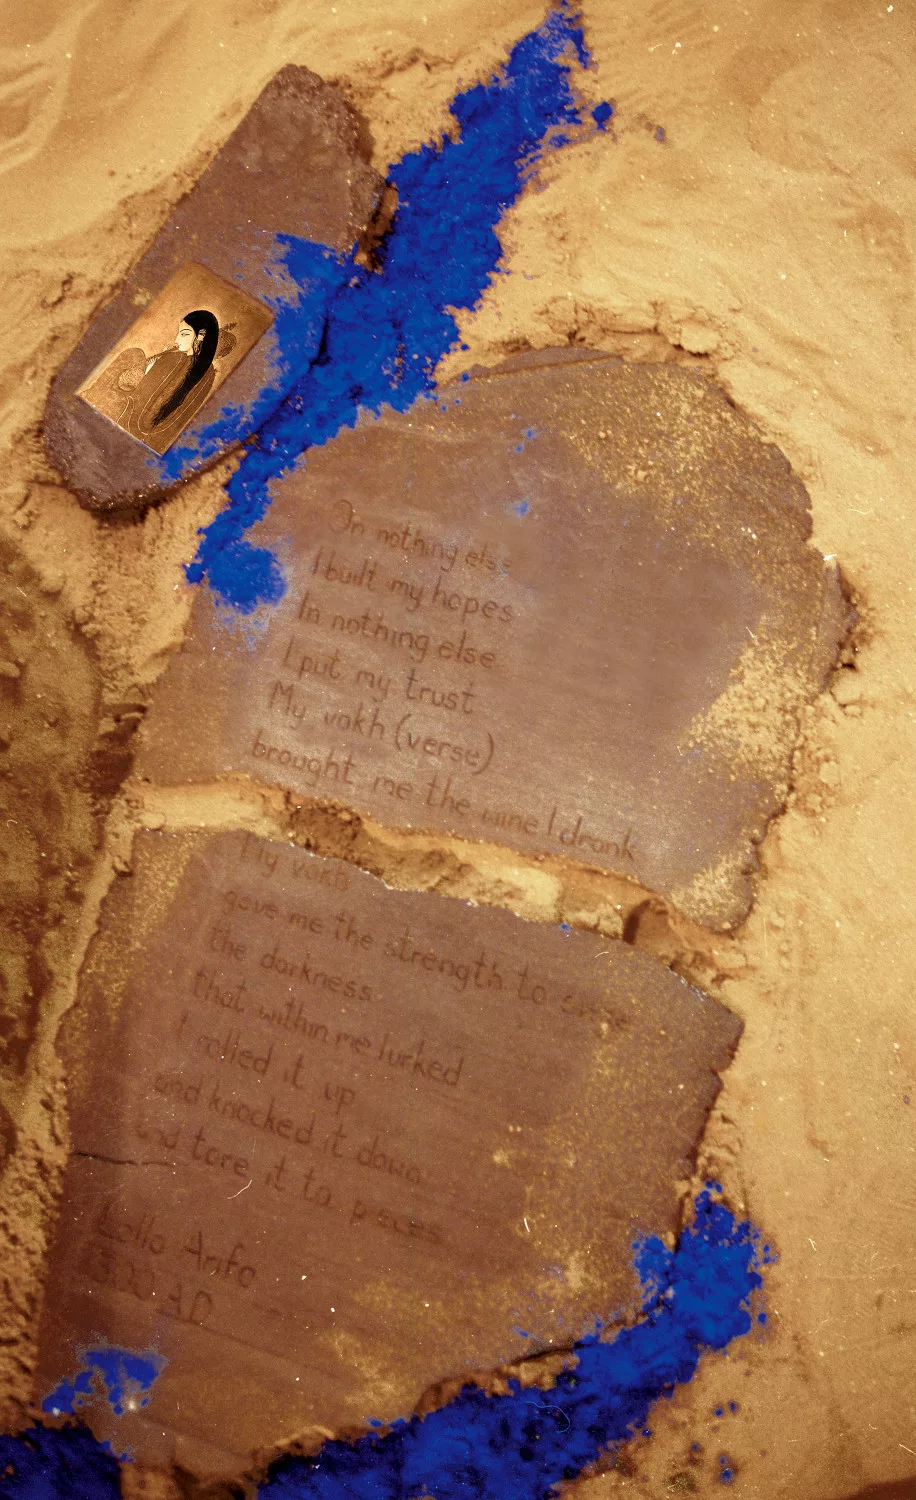 In nothing else
I built my hopes
In nothing else
I put my trust
My vakh (verse)
brought me the wine I drank
My vakh
gave me the strength to
the darkness
that within me lurked
I rolled it up
and knocked it down
and tore it to pieces
Lalla Arifa
AD